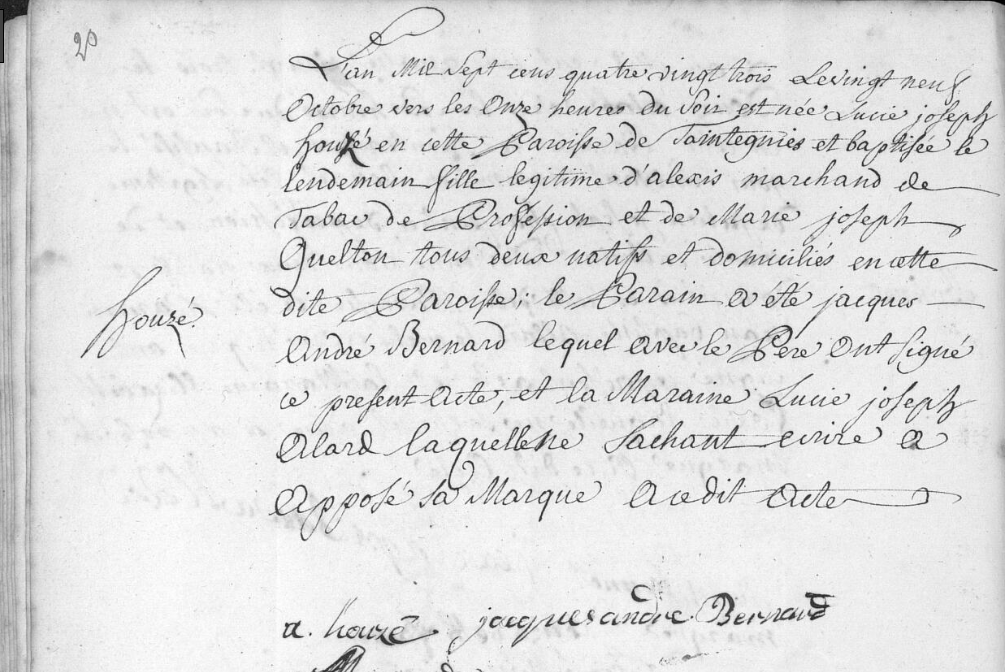 20
L'an Mil Sept cens quatre vingt trois Le vingt neuf
Octobre vers les Onze heures du Soir est née Lucie joseph
houzé en cette Paroisse de Taintegnies et baptisée le
lendemain fille legitime d'alexis marchand de
Tabac de Profession et de Marie joseph
Quelton tous deux natifs et domiciliés en cette
dite Paroisse; le Parain a été jacques
houzé.
André Bernard lequel avec le Pere Ont Signé
ce present Acte, et la Maraine Lucie joseph
Alard laquelle ne Sachant ecrire a
Apposé sa Marque Acedit Acte
a. houzé jacques andre Bernard